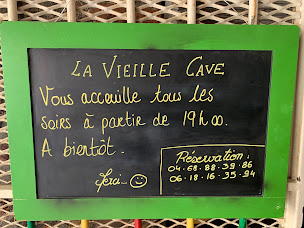 LA VIEILLE CAVE
Vous acceuille tous les
soirs à partir de 19h00.
A bientôt.
Merci...
Réservation :
04.68.88.39.86
06.18.16.35.94